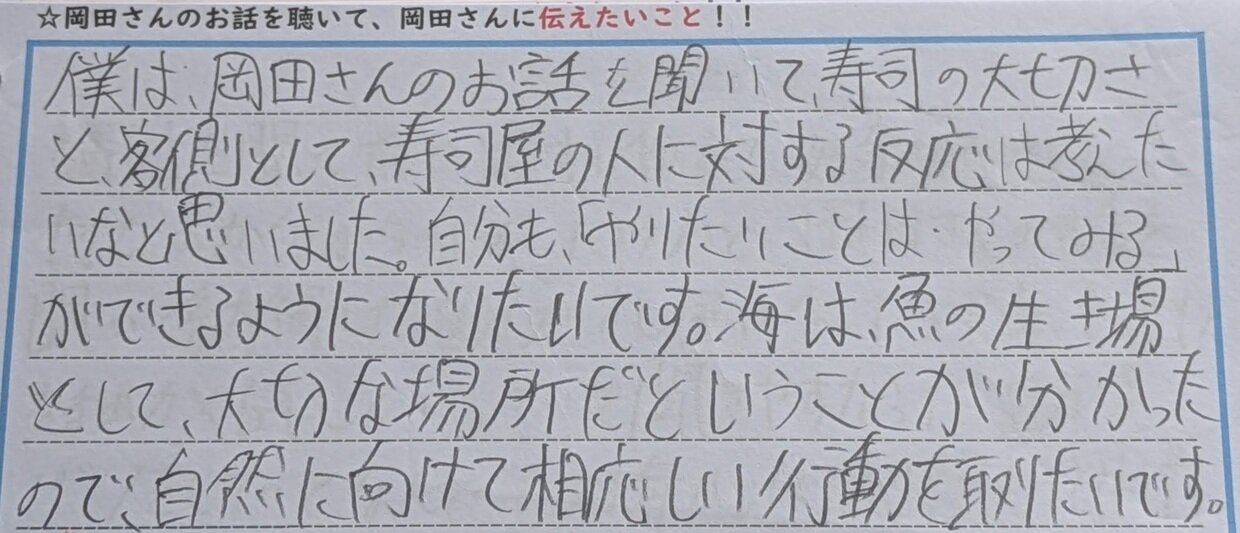 ☆岡田さんのお話を聴いて、岡田さんに伝えたいこと！！
僕は、岡田さんのお話を聞いて、寿司の大切さ
と、客側として、寿司屋の人に対する反応は考えた
いなと思いました。自分も、「やりたいことは・やってみる」
ができるようになりたいです。海は、魚の生き場
として、大切な場所だということが分かった
ので、自然に向けて相応しい行動を取りたいです。